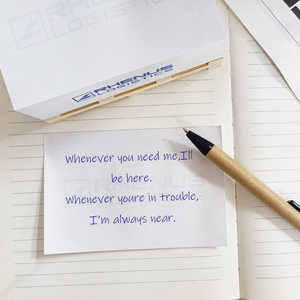 RHENUS
LOGISTICS
RHENUS
LOGISTICS
Whenever you need me,I'll
be here.
Whenever youre in trouble,
I'm always near.
RHENUS
LOGISTICS